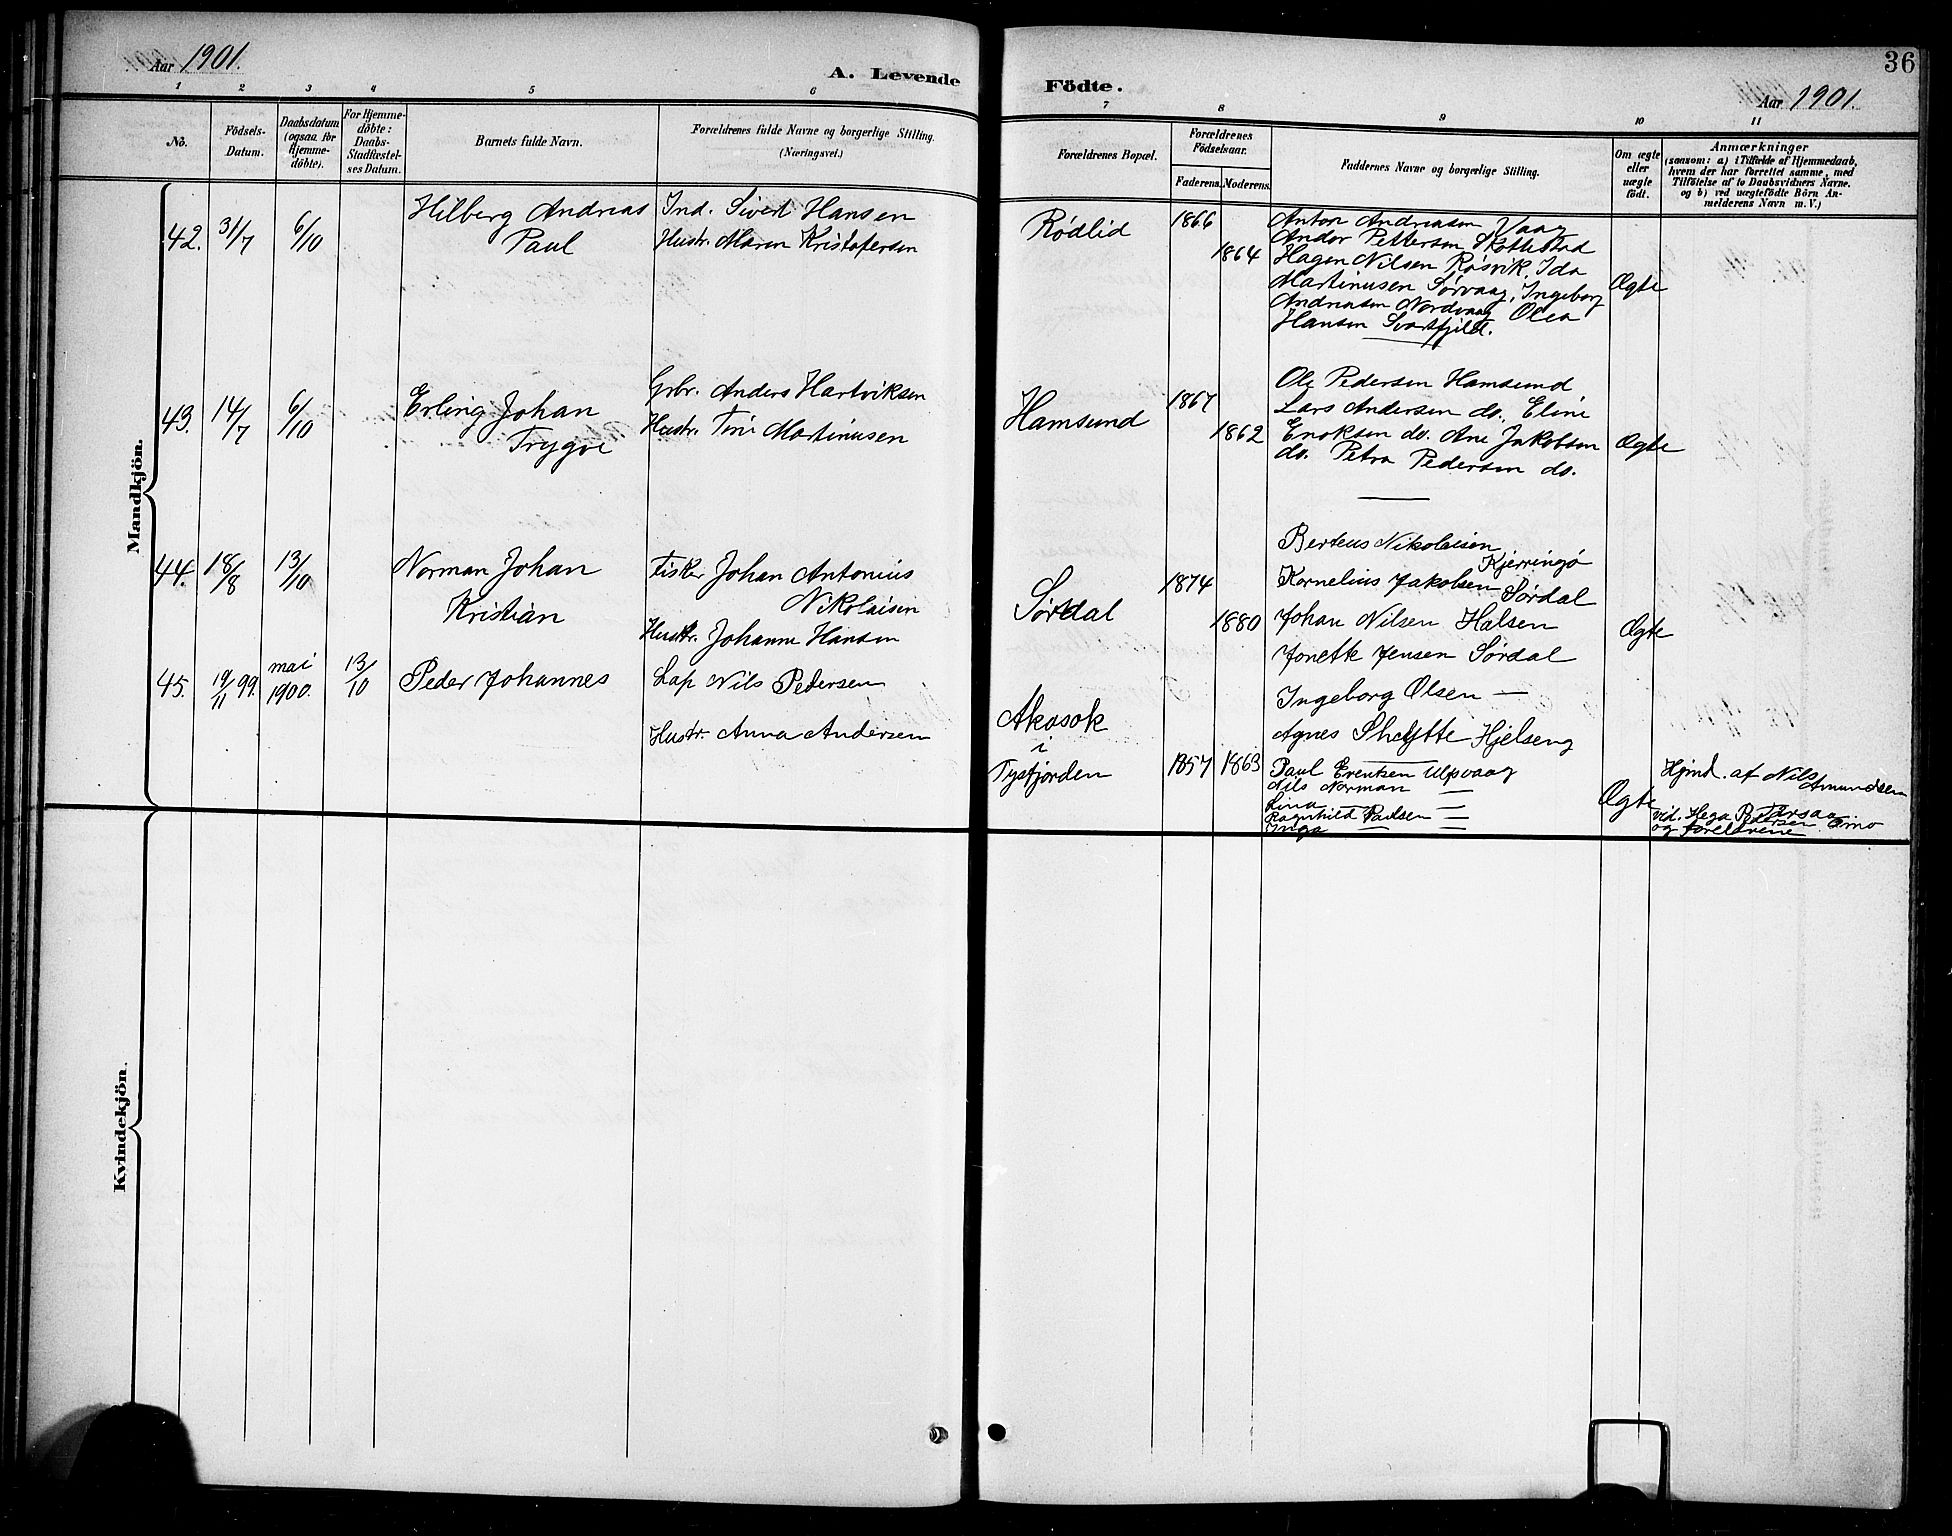 Aar 1901.
A. Levende
Födte.
36
Aar 1901.
1 2 3 4 5 6 7 8 9 10 11
No.
Födsels-
Datum.
Daabsdatum
(ogsaa for
Hjemme-
döbte).
For Hjemme-
döbte:
Daabs-
Stadfæstel-
ses Datum.
Barnets fulde Navn.
Forældrenes fulde Navne og borgerlige Stilling.
(Næringsvei.)
Forældrenes Bopæl.
Forældrenes
Födselsaar.
Faderens.
Moderens.
Faddernes Navne og borgerlige Stilling.
Om ægte
eller
uægte
födt.
Anmærkninger
(saasom: a) i Tilfælde af Hjemmedaab,
hvem der har forrettet samme, med
Tilföielse af to Daabsvidners Navne.
og b) ved uægtefödte Börn An-
melderens Navn m. V.)
Mandkjön.
42. 31/7 6/10
Hilberg Andreas
Paul
Ind. Sivert Hansen
Hustr. Maren Kristofersen
Rödlid
1866
1864
Anton Andreasen Vaag
Andor Pettersen Skottestad
Hagen Nilsen Røsvik, Ida
Martinusen Sørvaag, Ingeborg
Andreasen Nordvaag Olea
Hansen Svartfjeld.
Ægte
43. 14/7 6/10
Erling Johan
Trygve
Grbr. Anders Hartviksen
Hustr. Tine Martinusen
Hamsund
1867
1862
Ole Pedersen Hamsund
Lars Andersen do. Eline
Enoksen do. Ane Jakobsen
do. Petra Pedersen do.
Ægte
44. 18/8 13/10
Norman Johan
Kristian
Fisker Johan Antonius
Nikolaisen
Hustr. Johanne Hansen
Sørdal
1874
1880
Berteus Nikolaisen
Kjerringø
Kornelius Jakobsen Sørdal
Johan Nilsen Halsen
Jonette Jensen Sørdal
Ingeborg Olsen —
Agnes Hjelseng
Ægte
45. 19/11 99. mai
1900. 13/10
Peder Johannes
Lap Nils Pedersen
Hustr. Anna Andersen
Akasok
i
Tysfjorden
1857 1863
Paul Erentsen Ulpvaag
Nils Norman —
Lina — —
Ragnhild Paulsen —
Inga — —
Ægte
Hjmd. af Nils
Amundsen
vid. Hega Pedersen
og forældrene
Kvindekjön.